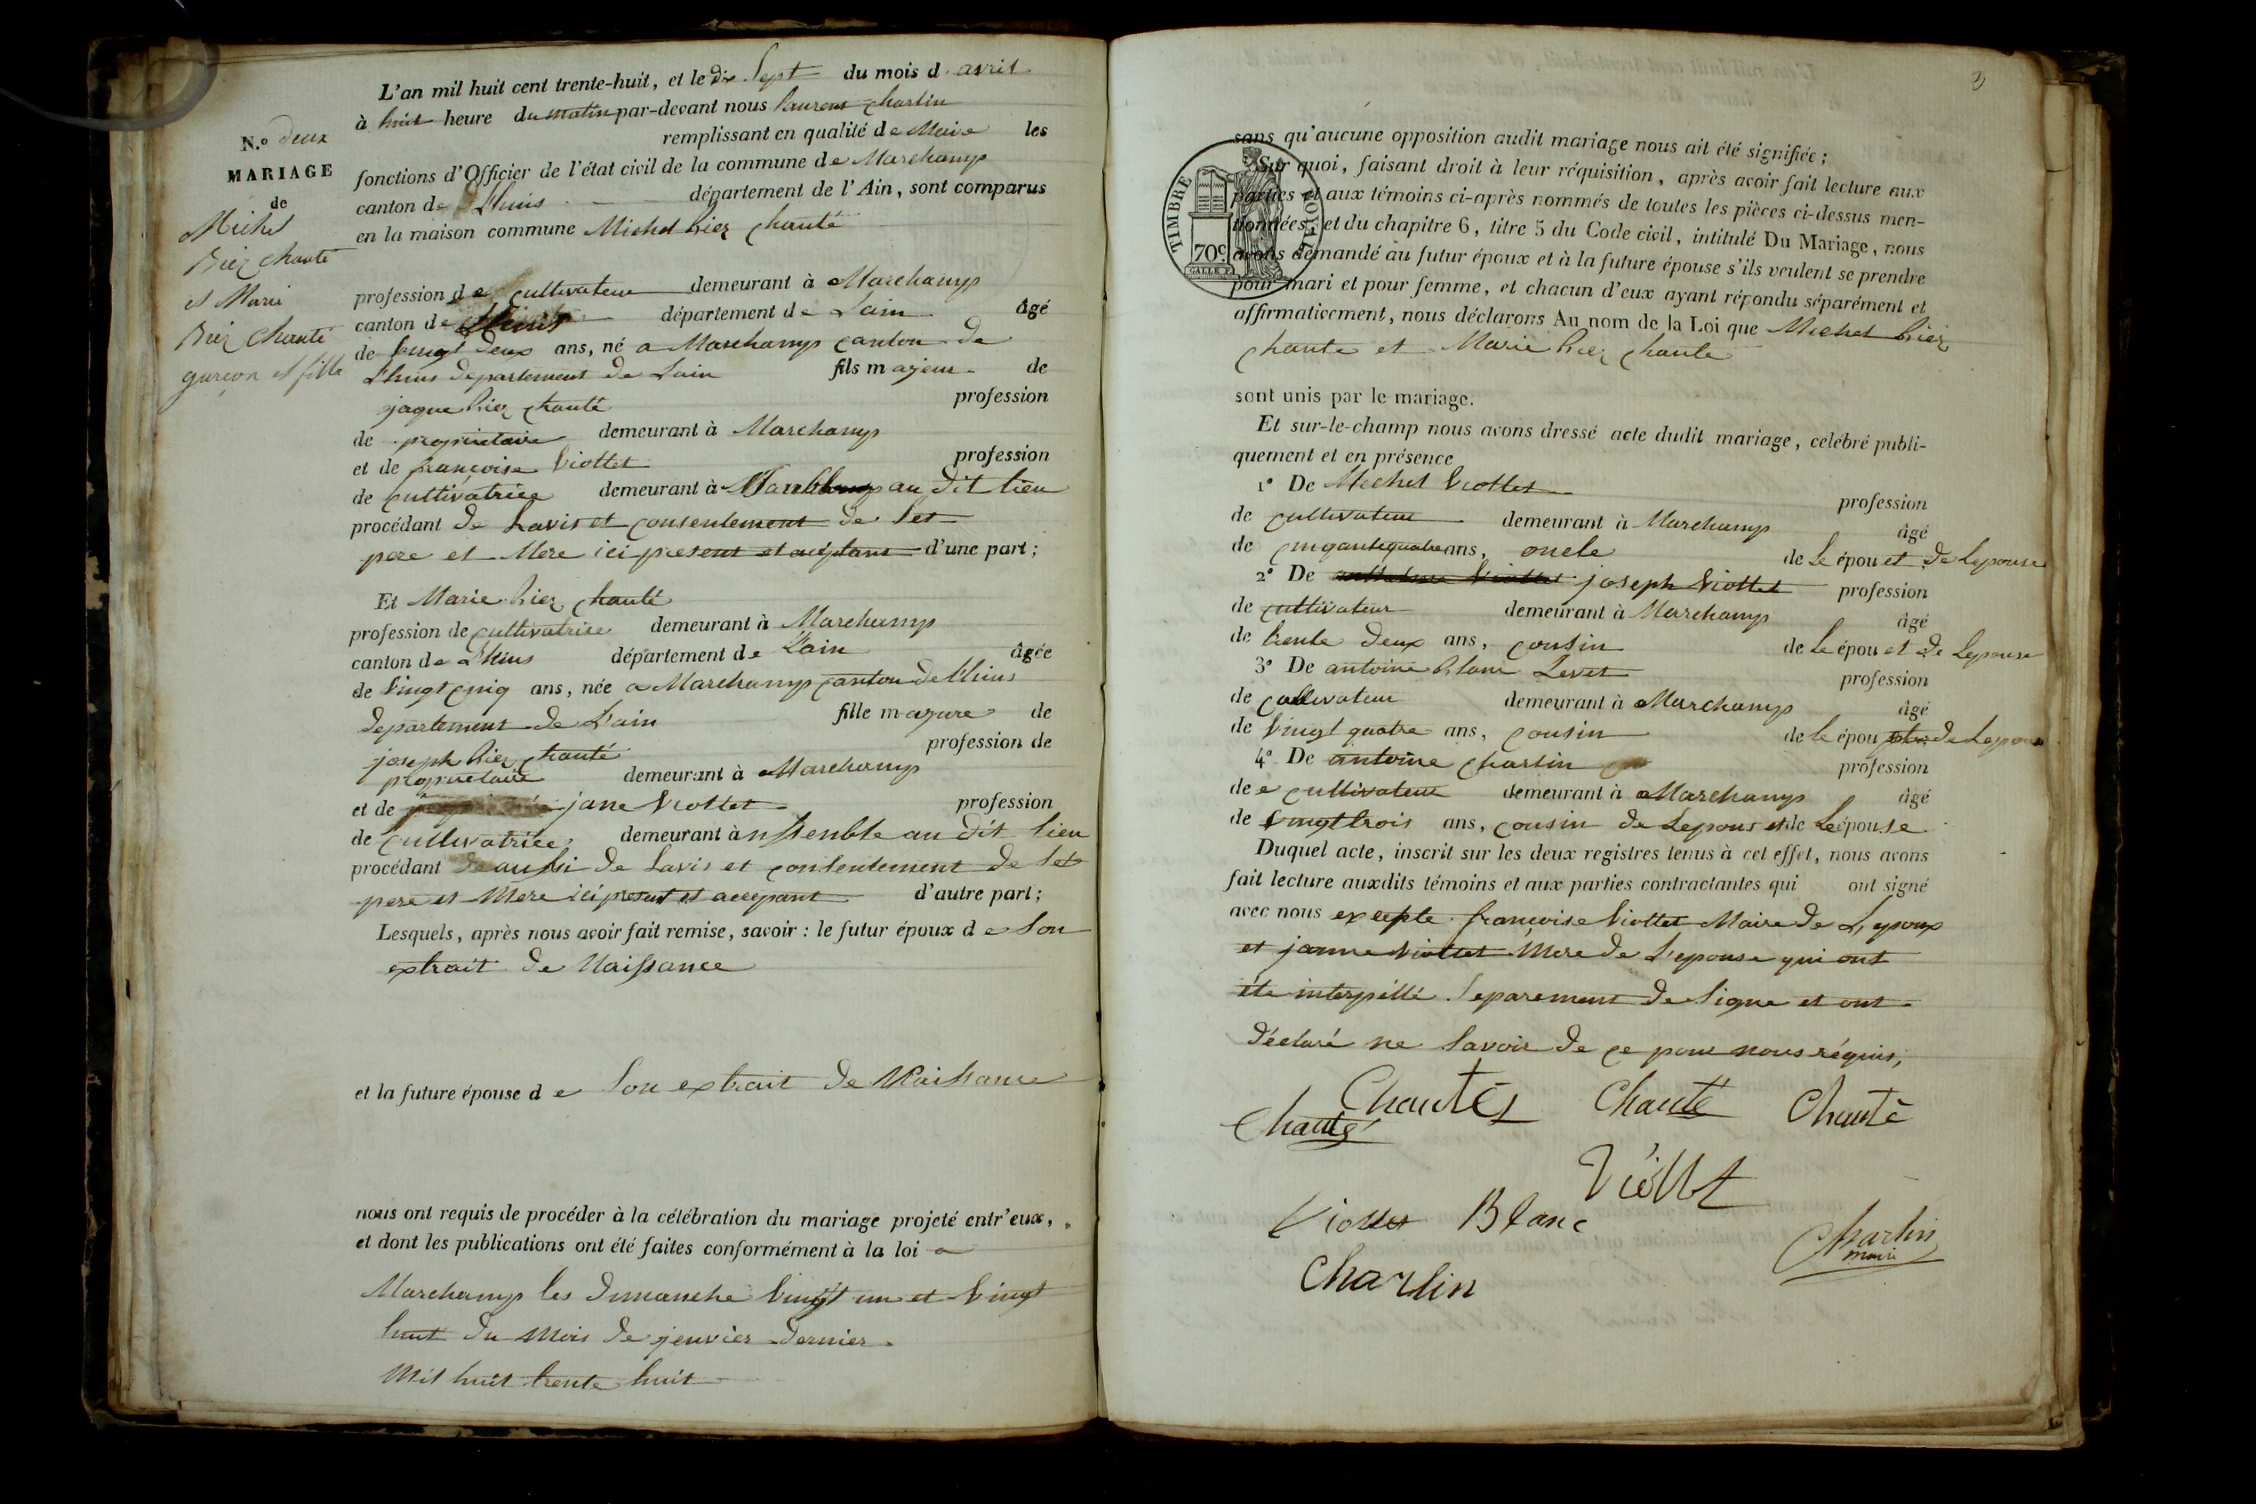 L'an mil huit cent trente-huit, et le dix Sept du mois d avril
à huit heure du matin par-devant nous laurent charlin
remplissant en qualité de Maire les
fonctions d'Officier de l'état civil de la commune de Marchamp
canton de Lhuis département de l'Ain, sont comparus
en la maison commune Michel Riez chanté
N.º deux
MARIAGE
de
Michel
Riez chanté
et Marie
Riez chanté
garçon et fille
profession de cultivateur demeurant à Marchamp
canton de Lhuis département de Lain âgé
de vingt deux ans, né a Marchamp canton de
Lhuis departement de Lain fils majeur de
jaque Riez chanté profession
de propriétaire demeurant à Marchamp
et de françoise Viottet profession
de cultivatrice demeurant à au dit lieu
procédant de Lavis et consentement de Ses
pere et Mere ici present et aceptant d'une part;
Et Marie Riez chanté
profession de cultivatrice demeurant à Marchamp
canton de Lhuis département de Lain âgée
de vingt cinq ans, née a Marchamp canton de Lhuis
departement de Lain fille majure de
joseph Riez chanté profession de
propriétaire demeurant à Marchamp
et de jane Viottet profession
de cultivatrice demeurant à enssenble au dit lieu
procédant aussi de Lavis et consentement de Ses
pere et Mere ici present et accepant d'autre part;
Lesquels, après nous avoir fait remise, savoir : le futur époux de Son
extrait de Naissance
et la future épouse de Son extrait de Naissance
nous ont requis de procéder à la célébration du mariage projeté entr'eux,
et dont les publications ont été faites conformément à la loi a
Marchamp les dimanche vingt un et vingt
huit du Mois de jenvier dernier
Mil huit trente huit
3
TIMBRE ROYAL
70c
sans qu'aucune opposition audit mariage nous ait été signifiée;
Sur quoi, faisant droit à leur réquisition, après avoir fait lecture aux
parties et aux témoins ci-après nommés de toutes les pièces ci-dessus men-
tionnées, et du chapitre 6, titre 5 du Code civil, intitulé Du Mariage, nous
avons demandé au futur époux et à la future épouse s'ils veulent se prendre
pour mari et pour femme, et chacun d'eux ayant répondu séparément et
affirmativement, nous déclarons Au nom de la Loi que Michel Riez
chante et Marie Riez chante
sont unis par le mariage.
Et sur-le-champ nous avons dressé acte dudit mariage, célébré publi-
quement et en présence
1º De Michel Viottet profession
de cultivateur demeurant à Marchamp âgé
de cinquante quatre ans, oncle de Le épou et de Lepouse
2º De joseph Viottet profession
de cultivateur demeurant à Marchamp âgé
de trente deux ans, cousin de Le épou et de Lepouse
3º De antoine Blanc Levet profession
de cultivateur demeurant à Marchamp âgé
de vingt quatre ans, cousin de le épou de Lepouse
4º De antoine charlin profession
de cultivateur demeurant à Marchamp âgé
de vingt trois ans, cousin de Lepous et de Le épouse
Duquel acte, inscrit sur les deux registres tenus à cet effet, nous avons
fait lecture auxdits témoins et aux parties contractantes qui ont signé
avec nous excepte françoise Viottet Maire de L'epoux
et janne Viottet Mere de L'epouse qui ont
été interpéllé Separement de Signe et ont
déclaré ne Savoir de ce pour nous réquis,
Chanté Chanté Chanté
Chanté
Viottet
Viottet Blanc
Charlin
maire
Charlin